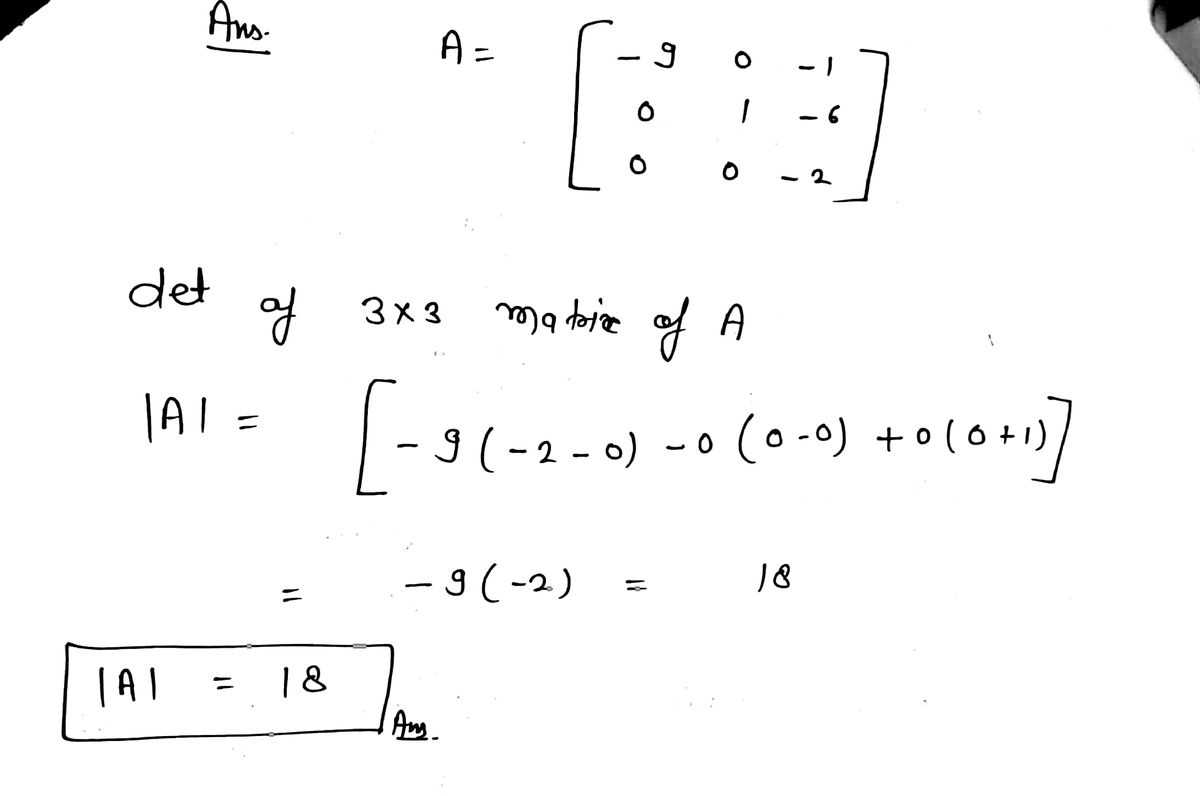 Ans.
A = [ -9 0 -1
0 1 -6
0 0 -2 ]
det of 3×3 matrix of A
|A| = [-9(-2-0) -0(0-0) +0(0+1)]
= -9(-2) = 18
|A| = 18
Ans.